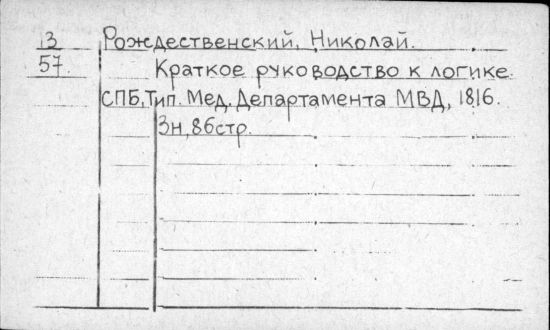 13 Рождественский, Николай.
57 Краткое руководство к логике.
СПБ, Тип. Мед. Департамента МВД, 1816.
3н, 86стр.